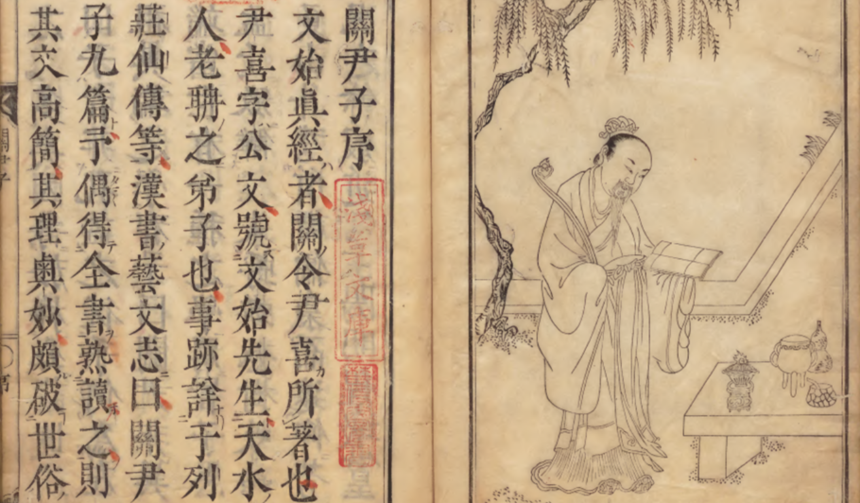 關尹子序
文始眞經者關令尹喜所著也
尹喜字公文號文始先生天水
人老聃之弟子也事跡詳于列
莊仙傳等漢書藝文志曰關尹
子九篇予偶得全書熟讀之則
其文高簡其理奧妙頗破世俗
淺草文庫